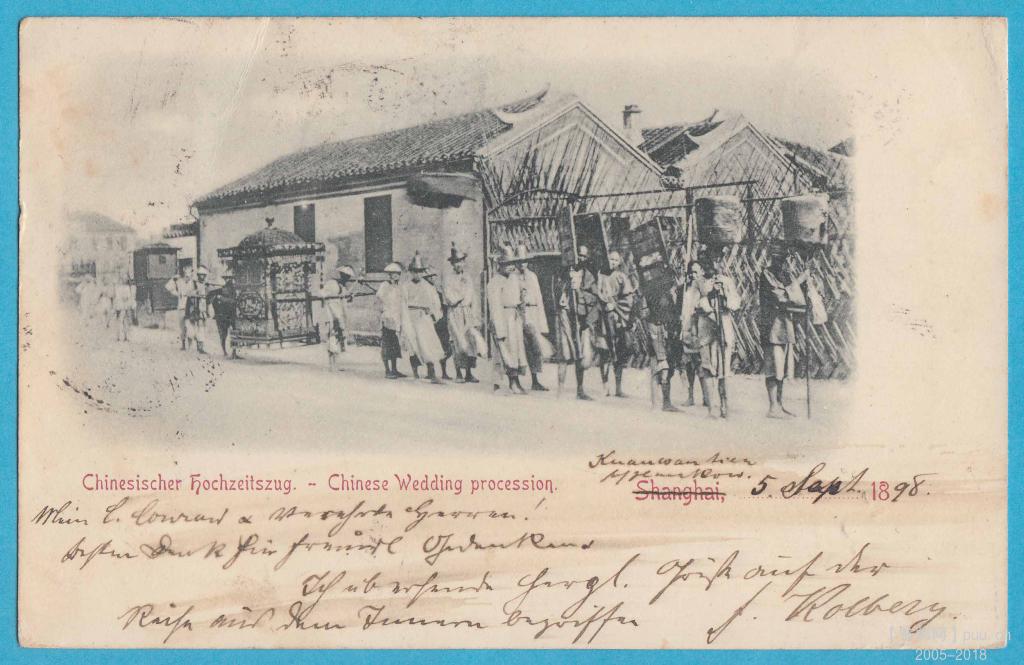 Kuanwantien
Hankow.
Chinesischer Hochzeitszug. - Chinese Wedding procession.
Shanghai, 5. Sept. 1898.
Mein l. Conrad & verehrte Herren!
besten Dank für freundl Gedenken
Ich übersende hergl. Grüße auf der
Reise aus dem Innern begriffen
J. Kolberg.
puu.cn
2005-2018